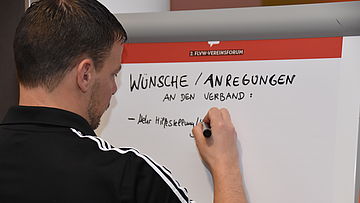 2. FLVW-VEREINSFORUM
WÜNSCHE / ANREGUNGEN
AN DEN VERBAND :
- Mehr Hilfestellung /